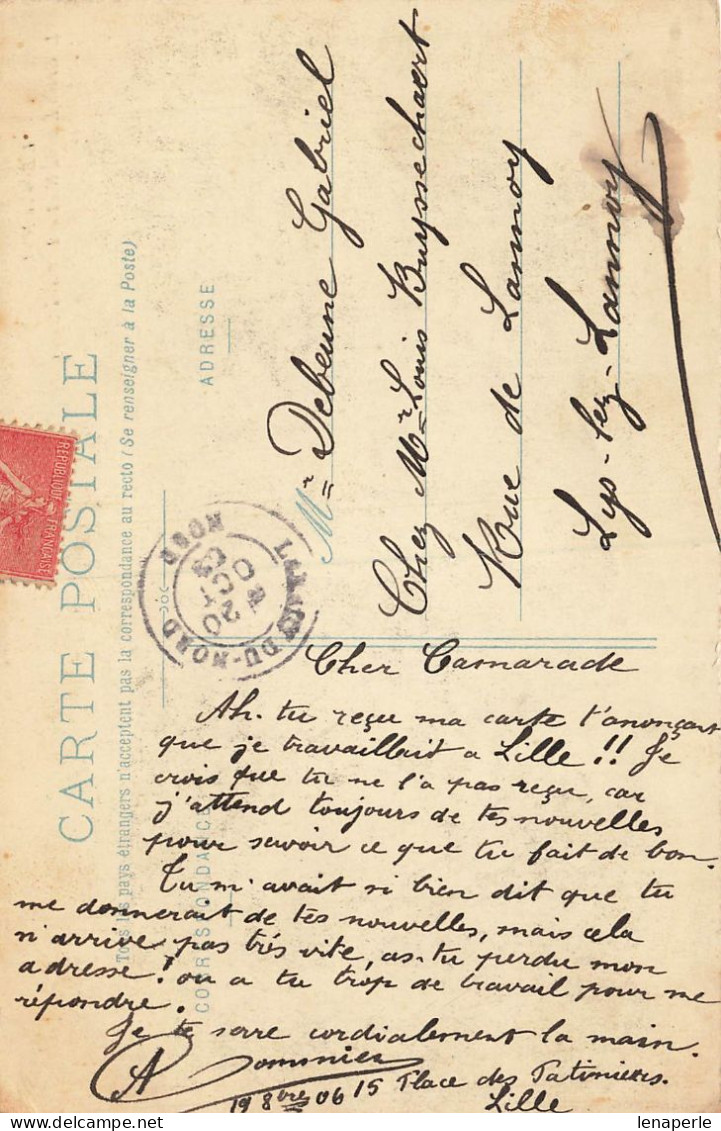 CARTE POSTALE
Tous les pays étrangers n'acceptent pas la correspondance au recto (Se renseigner à la Poste)
CORRESPONDANCE
ADRESSE
RÉPUBLIQUE
FRANÇAISE
DU-NORD
NORD
20
OCT
Mr Debeune Gabriel
Chez Mr Louis Buyssechaert
Rue de Lannoy
Lys-lez-Lannoy
Cher Camarade
Ah. tu reçu ma carte t'anonçant
que je travaillait a Lille!! Je
crois que tu ne l'a pas reçu, car
j'attend toujours de tes nouvelles
pour savoir ce que tu fait de bon.
Tu m'avait si bien dit que tu
me donnerait de tes nouvelles, mais cela
n'arrive pas très vite, as-tu perdu mon
adresse! ou a tu trop de travail pour me
répondre.
Je te serre cordialement la main.
A
19 8bre 06 15 Place des Patiniers.
Lille
lenaperle